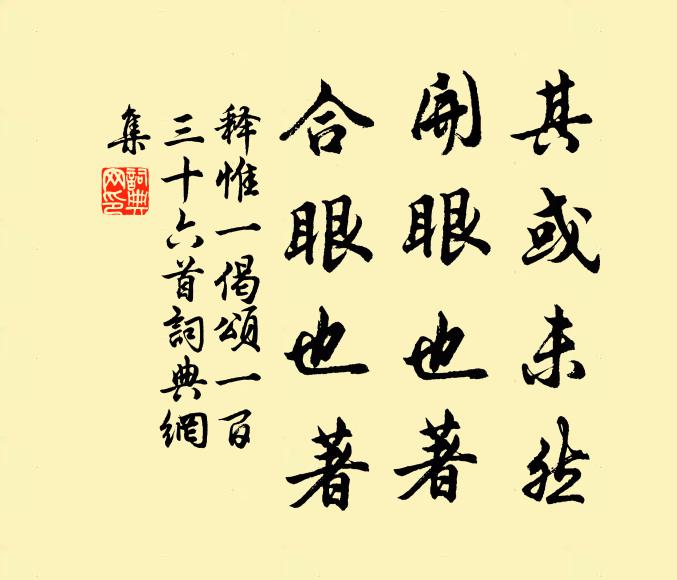 其或未然
開眼也著
合眼也著
释惟一偈頌一百
三十六首詞典網
集
詞典網印